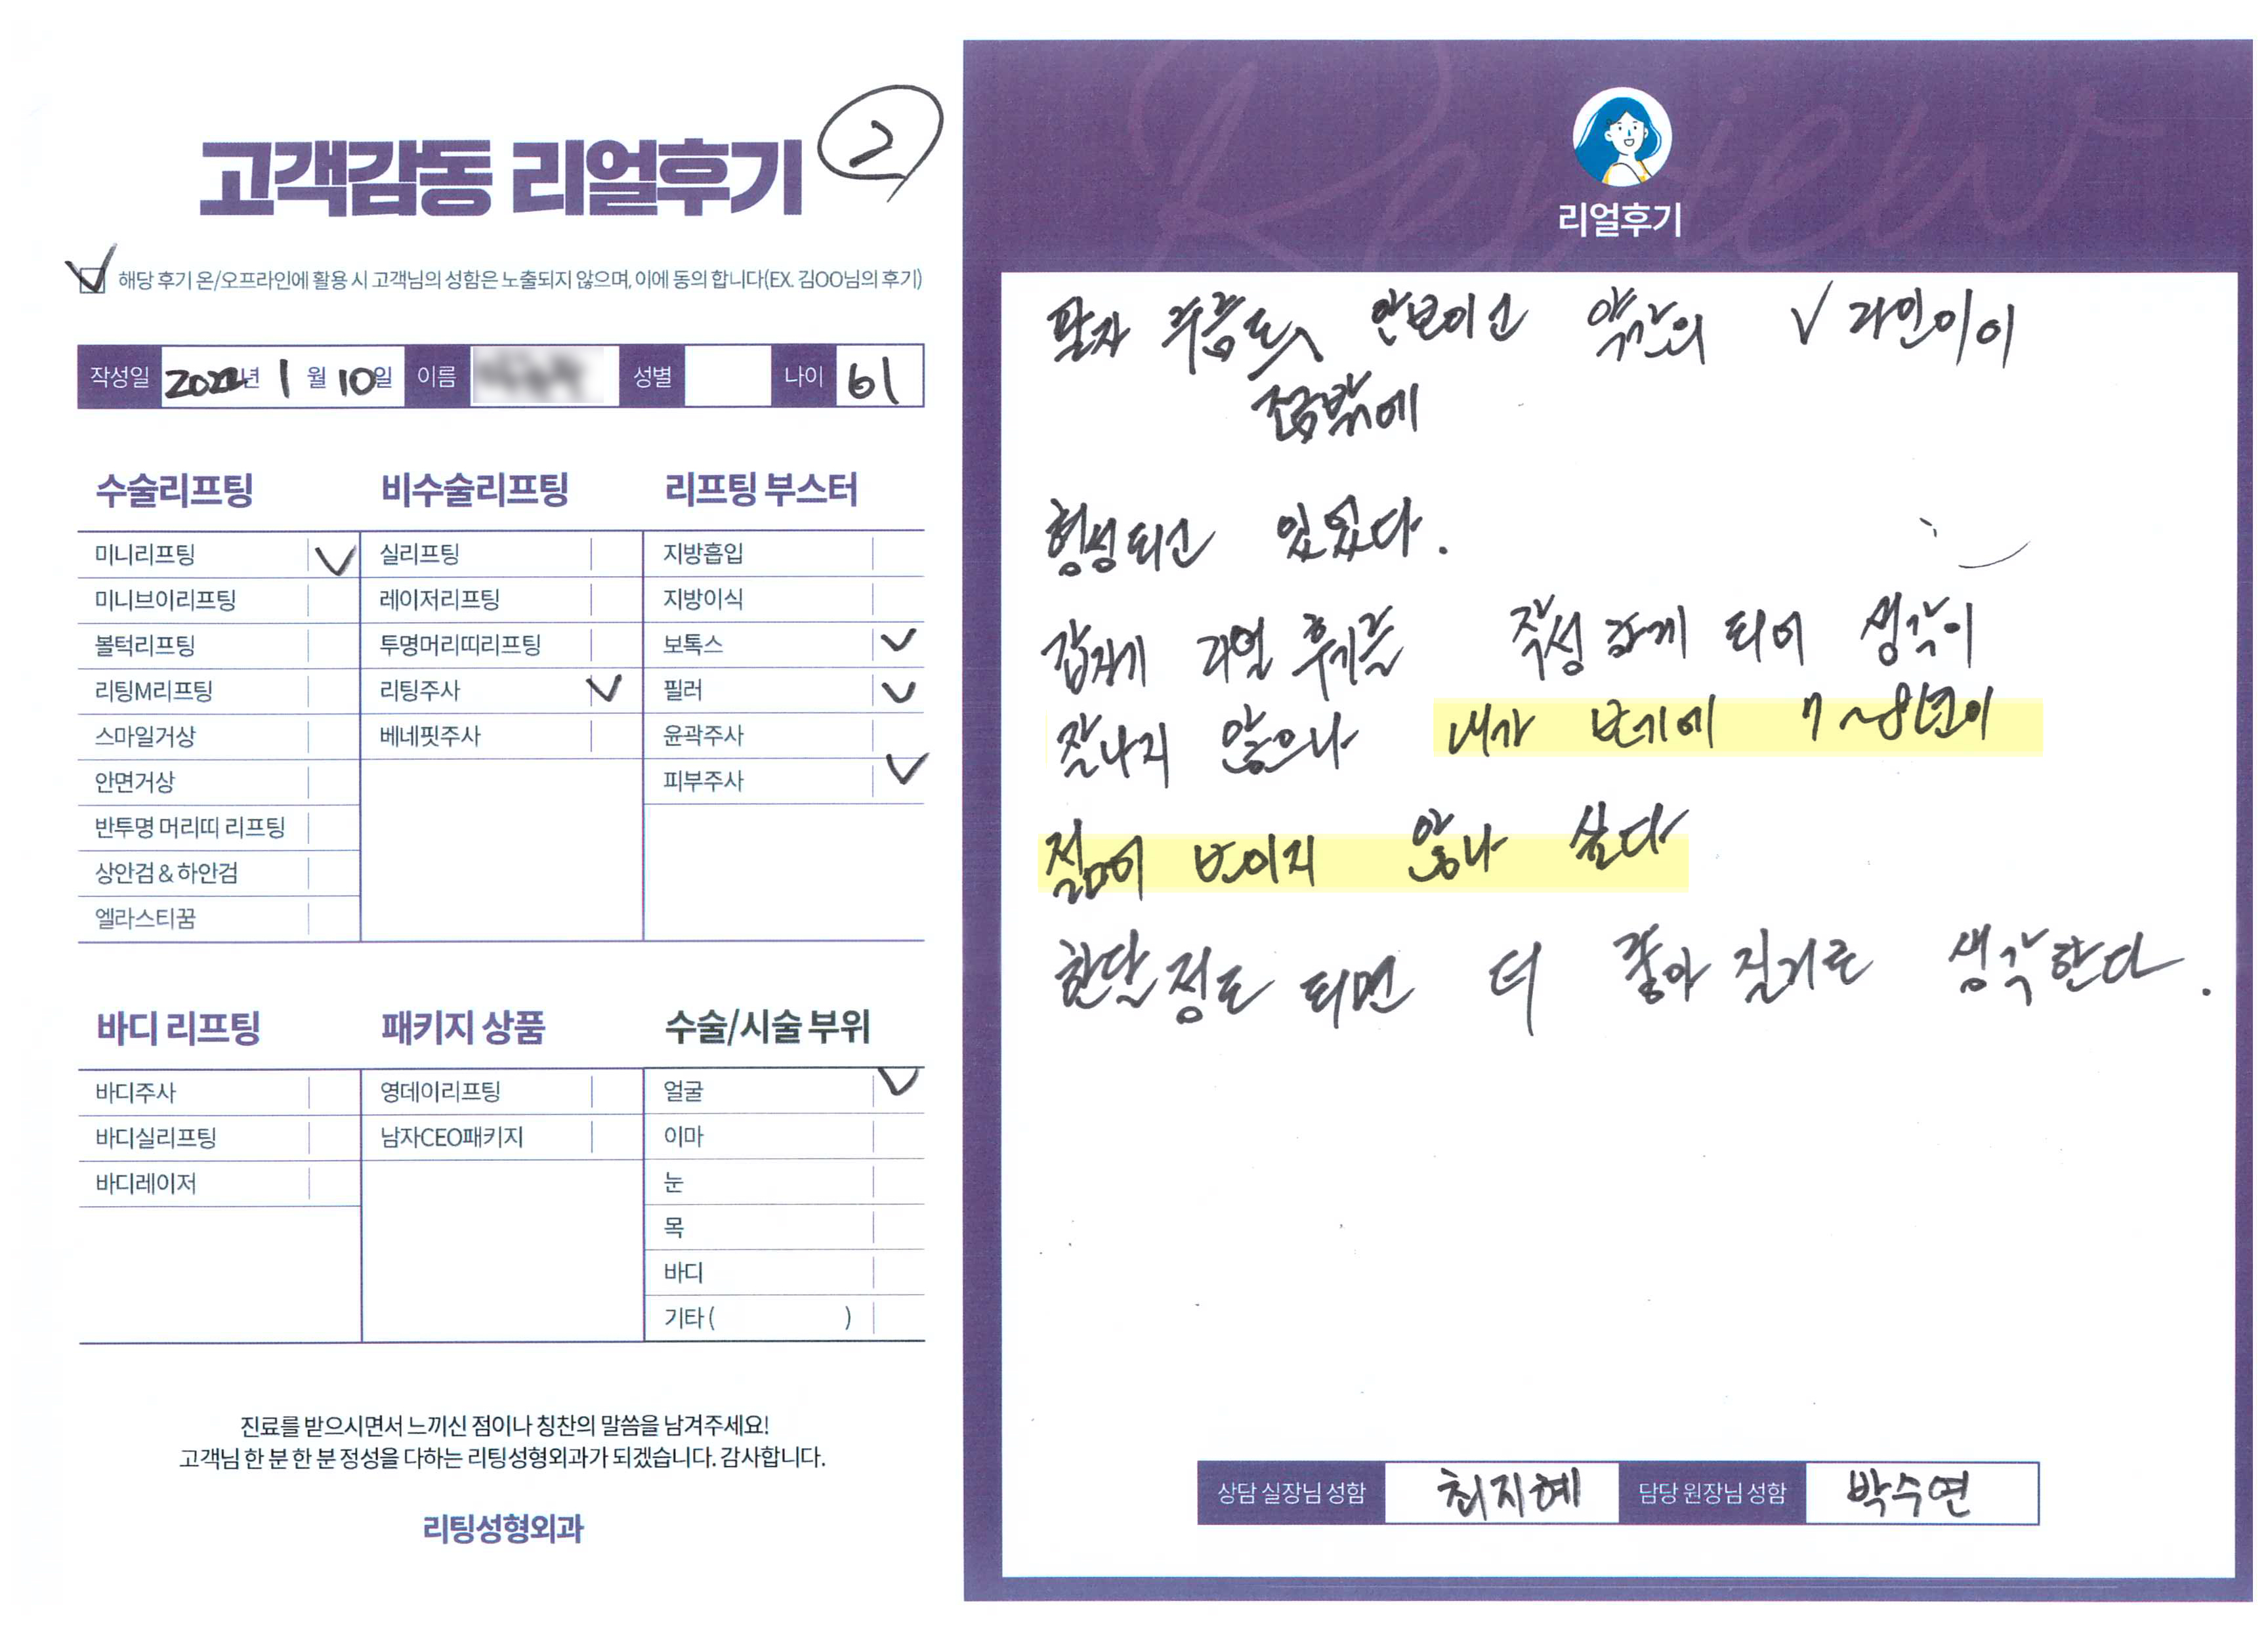 고객감동 리얼후기
2
해당 후기 온/오프라인에 활용 시 고객님의 성함은 노출되지 않으며, 이에 동의 합니다(EX. 김OO님의 후기)
작성일 2022년 1월 10일 이름 성별 나이 61
수술리프팅
미니리프팅
미니브이리프팅
볼턱리프팅
리팅M리프팅
스마일거상
안면거상
반투명 머리띠 리프팅
상안검 & 하안검
엘라스티꿈
비수술리프팅
실리프팅
레이저리프팅
투명머리띠리프팅
리팅주사
베네핏주사
리프팅 부스터
지방흡입
지방이식
보톡스
필러
윤곽주사
피부주사
바디 리프팅
바디주사
바디실리프팅
바디레이저
패키지 상품
영데이리프팅
남자CEO패키지
수술/시술 부위
얼굴
이마
눈
목
바디
기타 ( )
진료를 받으시면서 느끼신 점이나 칭찬의 말씀을 남겨주세요!
고객님 한 분 한 분 정성을 다하는 리팅성형외과가 되겠습니다. 감사합니다.
리팅성형외과
Review
리얼후기
팔자 주름도 안보이고 약간의 V 라인이이
조금밖에
형성되고 있었다.
갑자기 리얼 후기를 작성하게 되어 생각이
잘나지 않으나 내가 보기에 7~8년이
젊어 보이지 않나 싶다
한달 정도 되면 더 좋아 질거로 생각한다.
상담 실장님 성함 최지혜 담당 원장님 성함 박수연